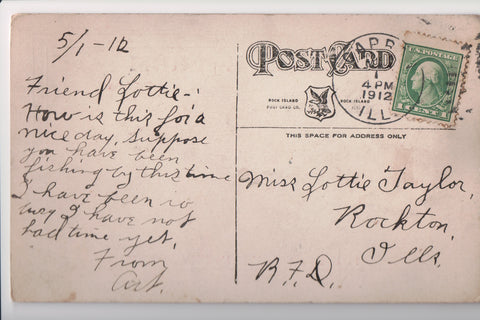 5/1-12
Friend Lottie-:
How is this for a
nice day. Suppose
you have been
fishing by this time
I have been so
busy I have not
had time yet.
From
Art.
POST CARD
ROCK ISLAND
POST CARD CO.
ROCK ISLAND
THIS SPACE FOR ADDRESS ONLY
APR
1
4 PM
1912
ILL.
U.S. POSTAGE
Miss Lottie Taylor,
Rockton,
Ills.
R.F.D.